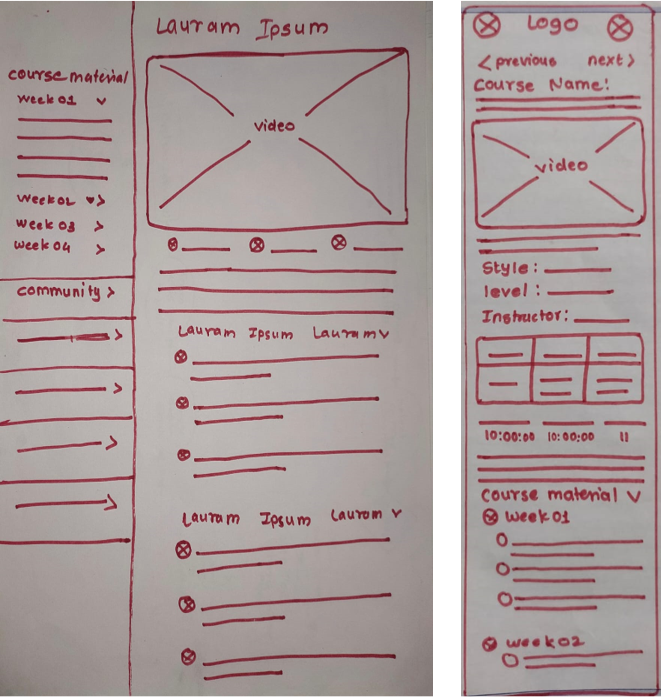 Lauram Ipsum
course material
week 01 v
video
week 02 >
week 03 >
week 04 >
community >
Lauram Ipsum Lauram v
Lauram Ipsum Lauram v
Logo
< previous next >
Course Name:
video
Style:
level:
Instructor:
10:00:00 10:00:00 11
course material v
week 01
week 02